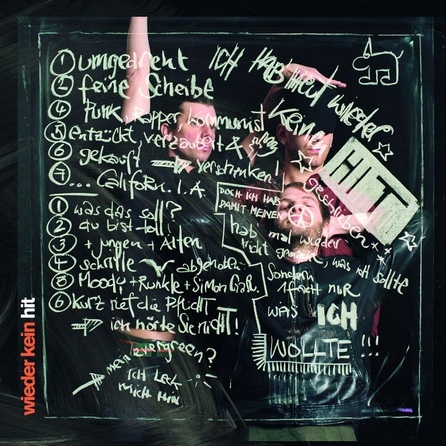 ① umgedreht
② feine Scheibe
④ Punk, Rapper, Kommunist
⑤ entzückt, verzaubert &
⑥ gekauft verstrunken!
⑦ ... Californ. I. A
① was das soll?
② du bist toll!
③ + jungen + Alten
④ schrille abgehoben
⑤ Moody + Runkle +
⑥ kurz rief die Pflicht
ich hörte Sie nicht!
mein evergreen?
ich leck
mich hin
ICH HAB' mal wieder
keinen
HIT
geschrieben
DOCH ICH HAB
DAMIT MEINEN
hab mal wieder
nicht gemacht, was ich sollte
sondern
nur
was ICH
WOLLTE!!!
wieder kein hit